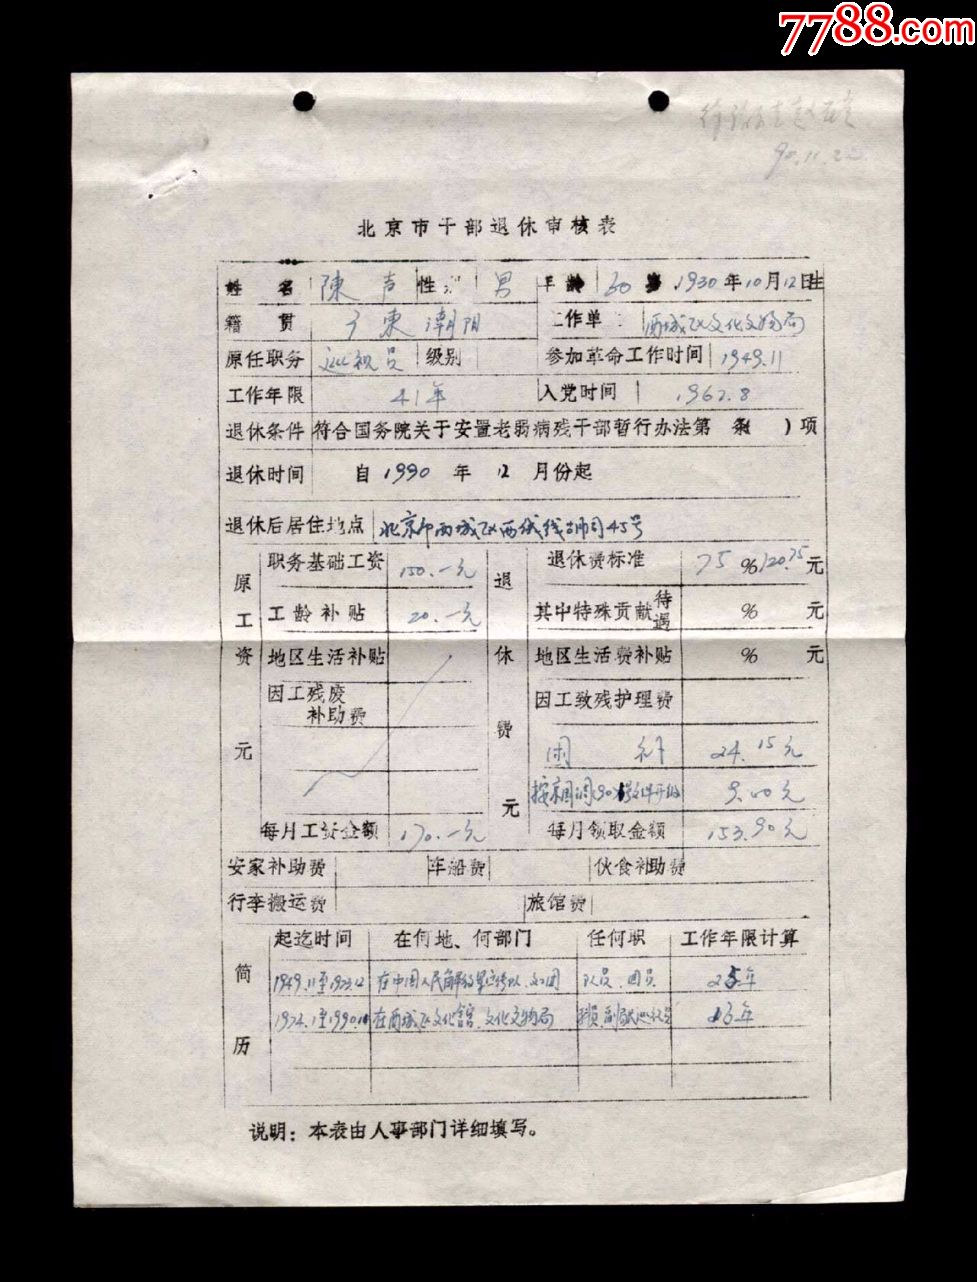 7788.com
90.11.22
北京市干部退休审核表
姓 名 陳声 性 男 年龄 60 岁 1930年10月12日生
籍 贯 广東潮阳 工作单 西城区文化文物局
原任职务 巡视员 级别 参加革命工作时间 1949.11
工作年限 41年 入党时间 1962.8
退休条件 符合国务院关于安置老弱病残干部暂行办法第 条( )项
退休时间 自1990年12月份起
退休后居住地点 北京市西城区西绒线胡同45号
原工资元 退休费元
职务基础工资 150.一元 退休费标准 75 % 120.75元
工龄补贴 20.一元 其中特殊贡献待遇 % 元
地区生活补贴 地区生活费补贴 % 元
因工残废补助费 因工致残护理费
24.15元
9.00元
每月工资金额 170.一元 每月领取金额 153.90元
安家补助费 车船费 伙食补助费
行李搬运费 旅馆费
简历
起迄时间 在何地、何部门 任何职 工作年限计算
1949.11至1973.12 在中国人民解放军 文工团 队员、团员 25年
1974.1至1990.10 在西城区文化馆、文化文物局 巡视员 16年
说明：本表由人事部门详细填写。